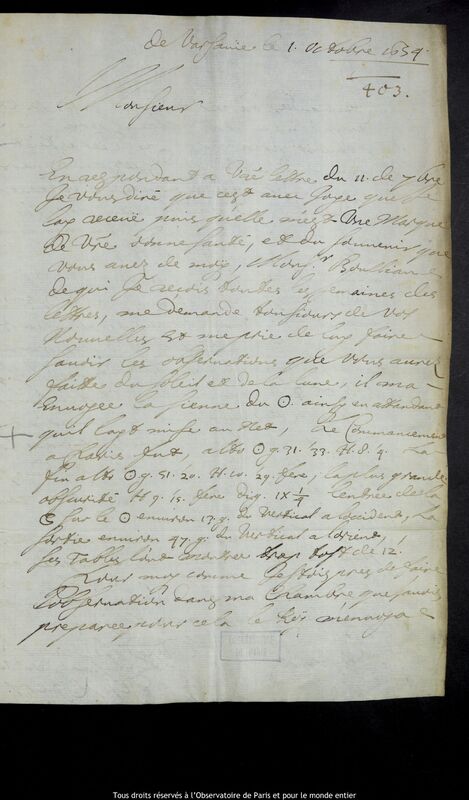 de Varsavie le 1. Octobre 1654.
403.
Monsieur
En respondant a Vre lettre du 11. de 7bre
Je vous diré que cest avec Joye que Je
lay receue puis quelle mest Vne Marque
de Vre bonne santé, et du souvenir que
vous avez de moy, Monsr. Boulliau
de qui Je reçois toutes les semaines des
lettres, me demande tousiours de vos
Nouvelles et me prie de luy faire
sçavoir les observations que vous aurez
faittes du soleil et de la lune, il ma
Envoyée la sienne du ☉. ainsy en attendant
quil layt mise au Net, Le Commancement
a Paris fut, alto ☉ g. 31. '33. H. 8. 9. La
fin alto ☉ g. 51. '20. H. 10. 29. fere, la plus grande
obscurité H 9. 15. fere dig. IX ¼ Lentrée de la
☾ sur le ☉ environ 17. g. du Vertical a loccident, La
sortie environ 47. g. du Vertical a lorient,
ses Tables lont monstré trop tost de 12'.
Pour moy comme Jestois pres de faire
lobservation dans ma Chambre que Javois
preparée pour cela le Roy m'envoya
Tous droits réservés à l'Observatoire de Paris et pour le monde entier